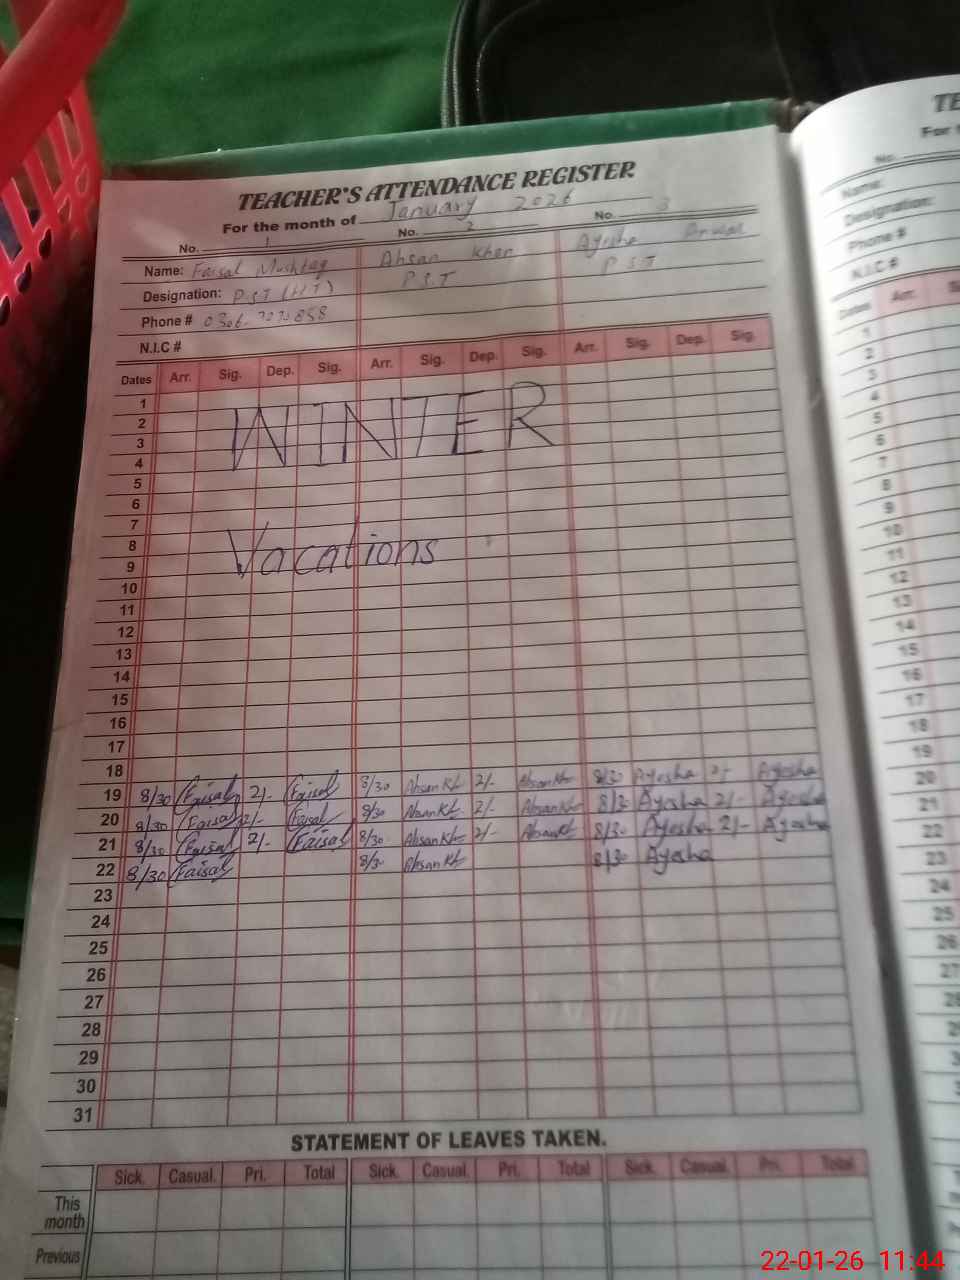 TEACHER'S ATTENDANCE REGISTER
For the month of January 2026
No. 1 No. 2 No. 3
Name: Faisal Mushtaq Ahsan Khan Ayesha Anwar
Designation: P.S.T (H.T) P.S.T P.S.T
Phone #
N.I.C #
Dates Arr. Sig. Dep. Sig. Arr. Sig. Dep. Sig. Arr. Sig. Dep. Sig.
1
2
3
4
WINTER
5
6
7
8
9
Vacations
10
11
12
13
14
15
16
17
18
19 8/30 Faisal 2/- Faisal 8/30 AhsanKh 2/- AhsanKh 8/30 Ayesha 2/- Ayesha
20 8/30 Faisal 2/- Faisal 8/30 AhsanKh 2/- AhsanKh 8/30 Ayesha 2/- Ayesha
21 8/30 Faisal 2/- Faisal 8/30 AhsanKh 2/- AhsanKh 8/30 Ayesha 2/- Ayesha
22 8/30 Faisal 8/30 AhsanKh 8/30 Ayesha
23
24
25
26
27
28
29
30
31
STATEMENT OF LEAVES TAKEN.
Sick. Casual. Pri. Total Sick. Casual. Pri. Total Sick. Casual. Pri. Total
This
month
Previous
TE
For t
No.
Name:
Designation:
Phone #
N.I.C #
Dates Arr.
1
2
3
4
5
6
7
8
9
10
11
12
13
14
15
16
17
18
19
20
21
22
23
24
25
26
27
28
29
22-01-26 11:44